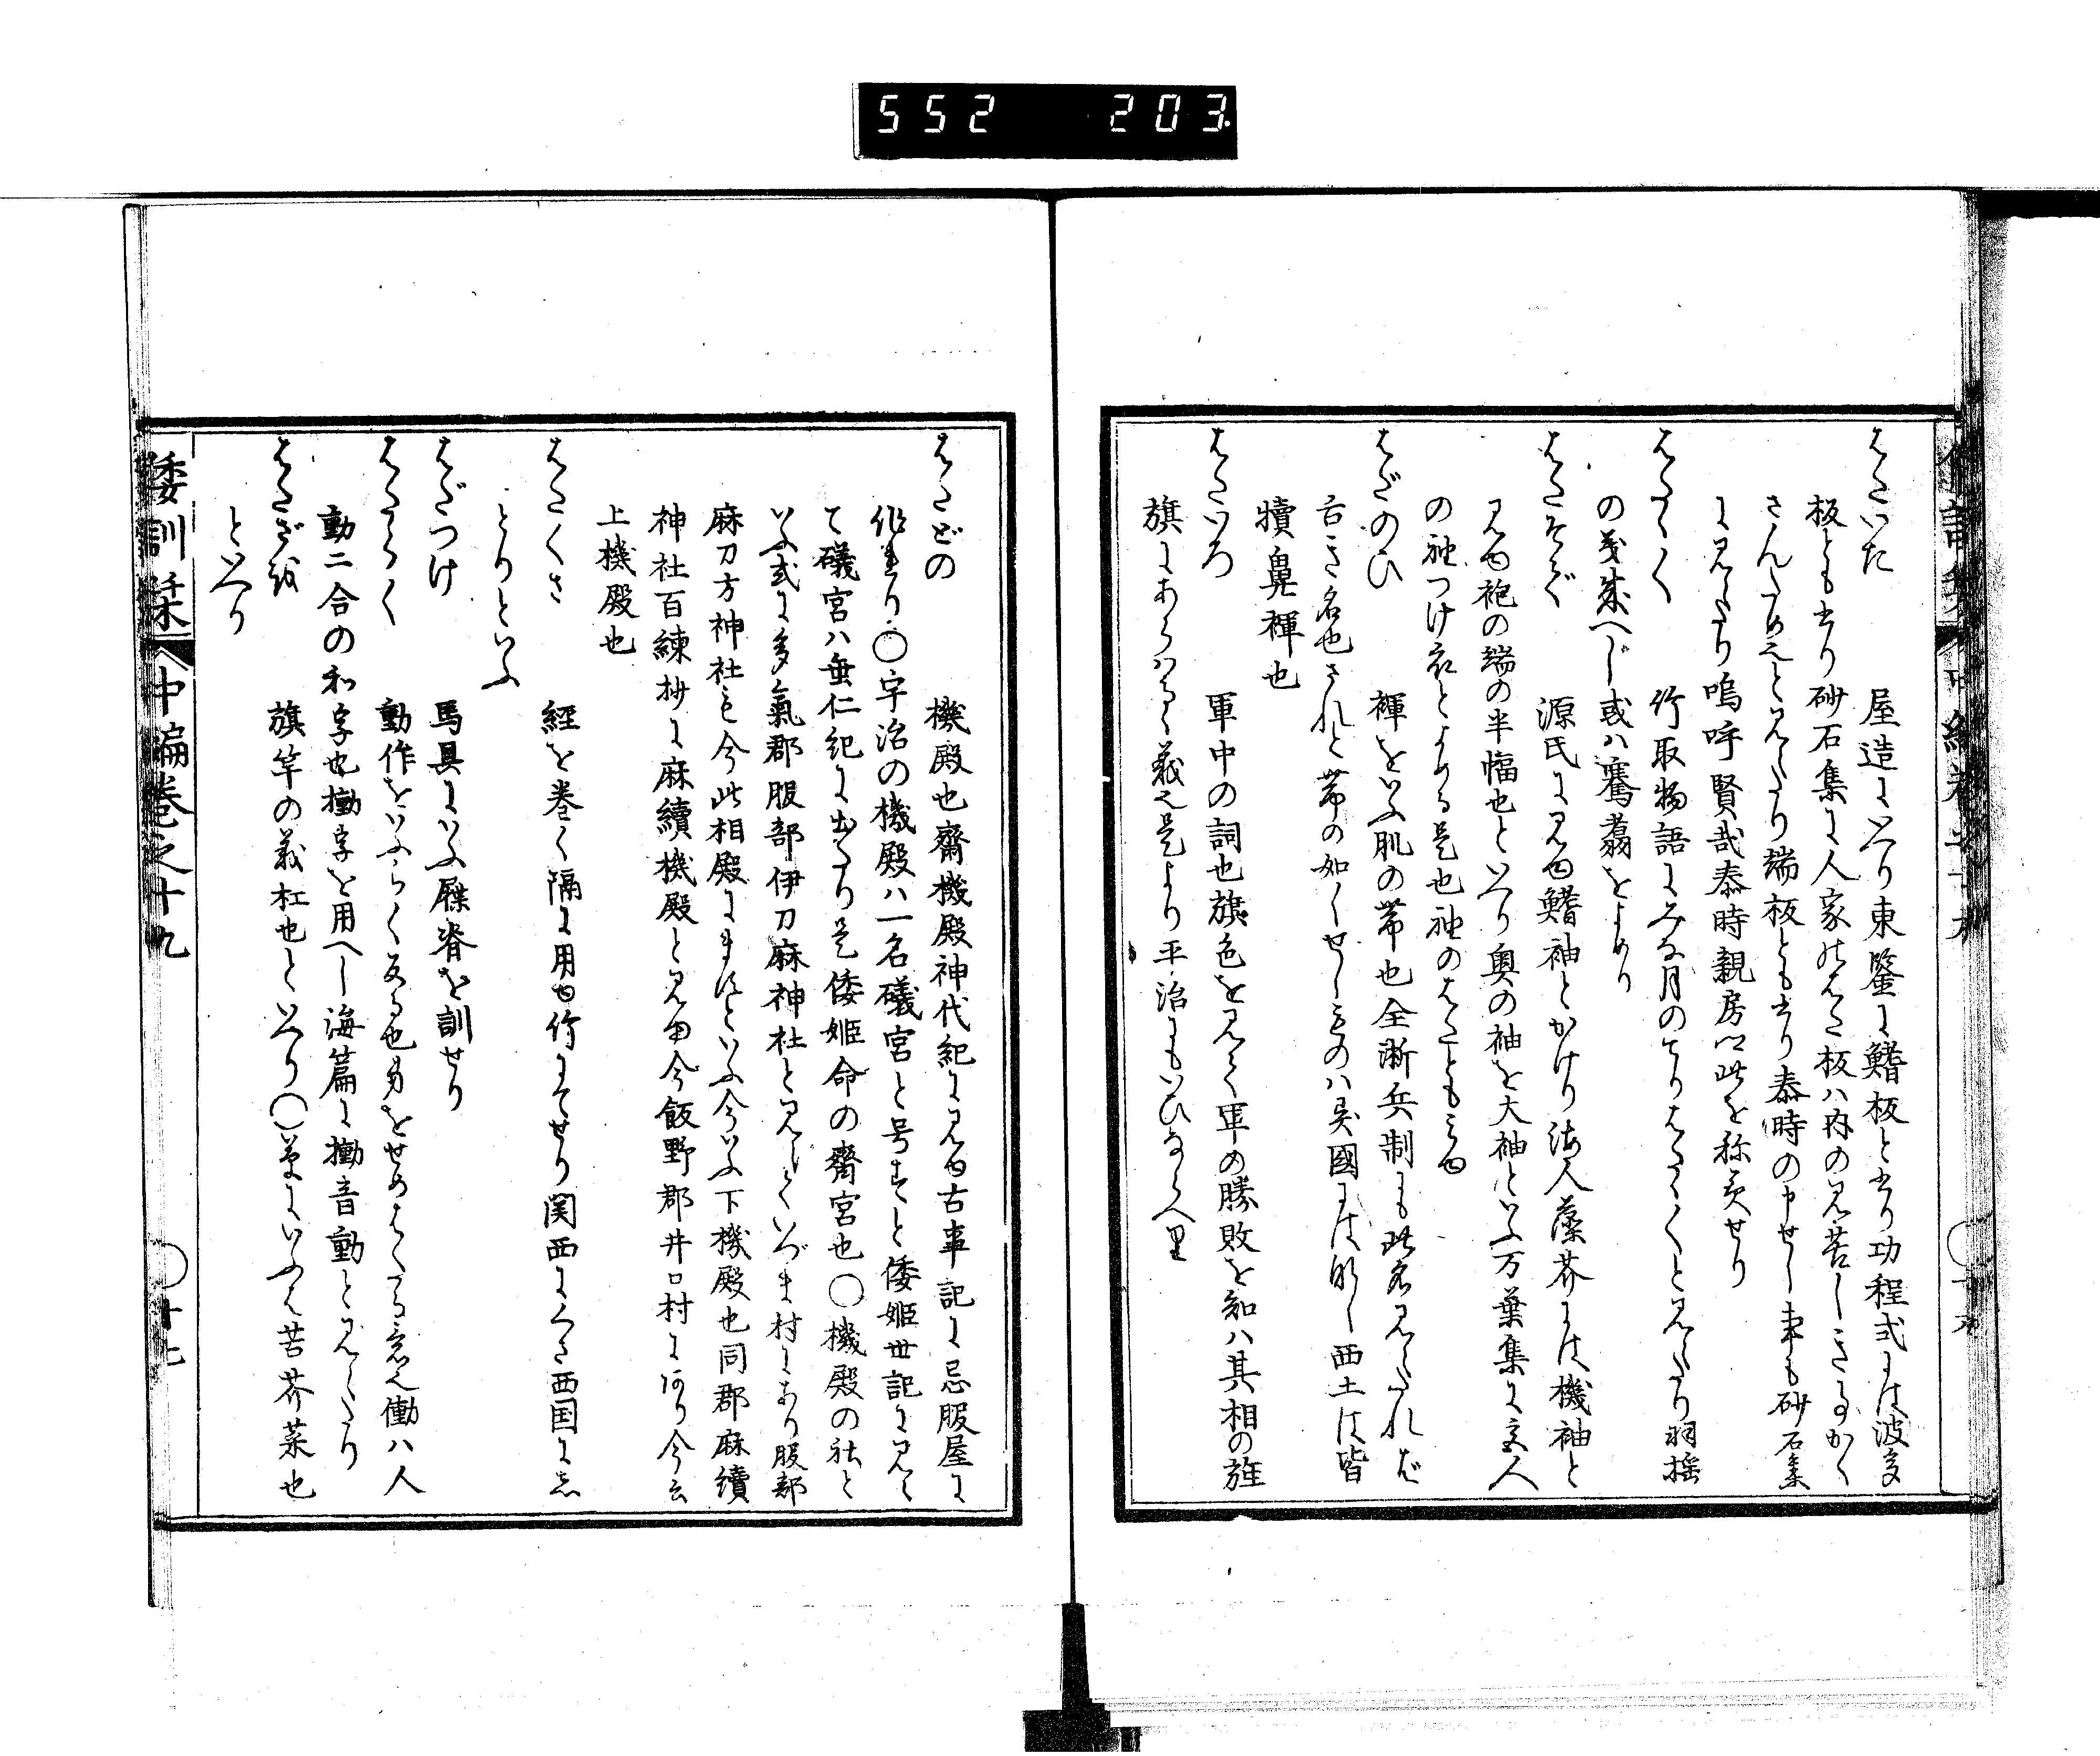 552 203
はたいた　屋造にいへり東鑒に鰭板と書り功程式には波多
板とも書り砂石集に人家のはた板ハ内の見苦しき
さんためと見えたり端板とも書り泰時の申せし事も砂石集
に見えたり嗚呼賢哉泰時親房以此を称美せり
はたゝく　竹取物語にみな月のてりはたゝくと見えたり羽搖
の義成へし或ハ騫翥をよめり
はたそで　源氏に見ゆ鰭袖とかけり海人藻芥には機袖と
見ゆ袍の端の半幅也といへり奥の袖を大袖といふ万葉集に
の袖つけ衣とよめる是也袖のはたともみゆ
はだのひ　褌をいふ肌の帯也全浙兵制にも此名見えたれば
古き名也されと帯の如くせしものハ異國には那し西土は皆
犢鼻褌也
はたいろ　軍中の詞也旗色を見て軍の勝敗を知ハ其相の旌
旗にあらハるゝ義也是より平治にもいひならへ里
はたどの　機殿也齋機殿神代紀に見ゆ古事記に忌服屋に
作れり〇宇治の機殿ハ一名礒宮と号すと倭姫世記に見え
て礒宮ハ垂仁紀に出たり是倭姫命の齋宮也〇機殿の社と
いふ式に多氣郡服部伊刀麻神社と見えていづま村にあり服部
麻刀方神社も今此相殿にますといふ今いふ下機殿也同郡麻續
神社百練抄に麻續機殿と見ゆ今飯野郡井口村にあり今云
上機殿也
はたくさ　経を巻く隔に用ゆ竹にてせり関西にくさ西国に志
とりといふ
はだつけ　馬具にいふ屧脊を訓せり
はたらく　動作をいふらく反る也身をせめはたる意也働ハ人
動二合の和字也㔙字を用へし海篇に㔙音動と見えたり
はたざほ　旗竿の義杠也といへり〇草にいふは苦芥菜也
といへり
倭訓栞　中編巻之十九　〇十七